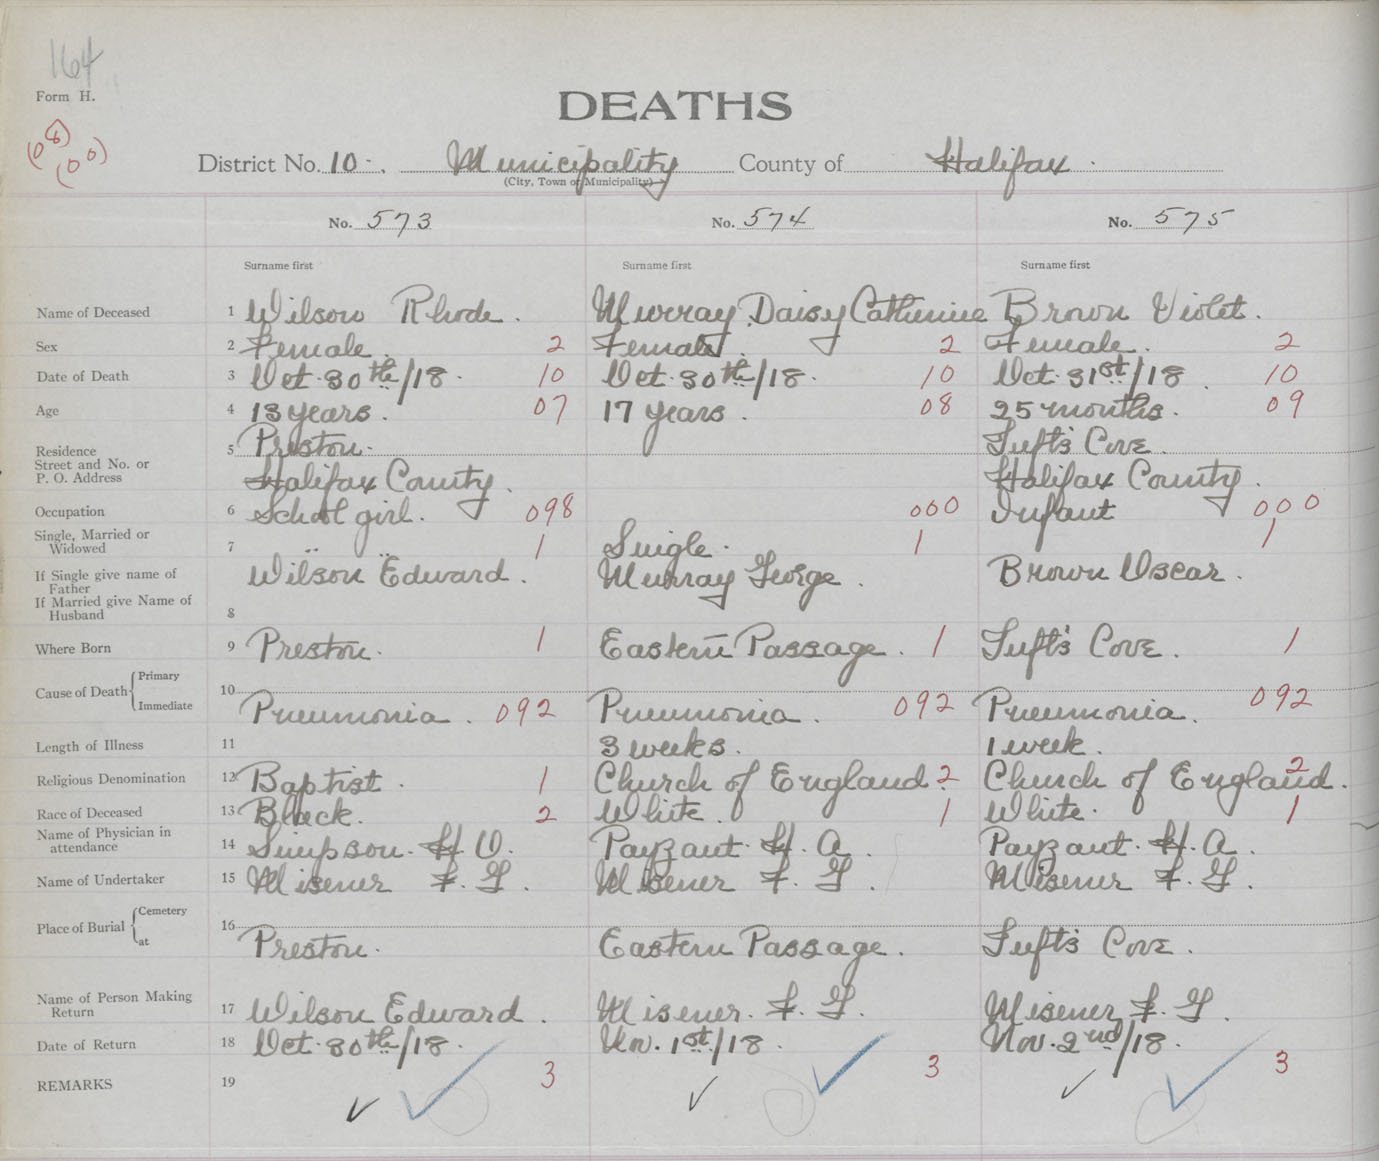 164
Form H.
DEATHS
(08)
(00)
District No. 10. Municipality County of Halifax.
(City, Town or Municipality)
No. 573 No. 574 No. 575
Surname first Surname first Surname first
Name of Deceased 1 Wilson Rhode. Murray Daisy Catherine Brown Violet.
Sex 2 Female. 2 Female. 2 Female. 2
Date of Death 3 Oct. 30th/18. 10 Oct. 30th/18. 10 Oct. 31st/18. 10
Age 4 13 years. 07 17 years. 08 25 months. 09
Residence 5 Preston. Tuft's Cove.
Street and No. or
P. O. Address Halifax County. Halifax County.
Occupation 6 School girl. 098 000 Infant 000
Single, Married or
Widowed 7 " " 1 Single. 1 1
If Single give name of
Father Wilson Edward. Murray George. Brown Oscar.
If Married give Name of
Husband 8
Where Born 9 Preston. 1 Eastern Passage. 1 Tuft's Cove. 1
Cause of Death Primary 10
Immediate Pneumonia. 092 Pneumonia. 092 Pneumonia. 092
Length of Illness 11 3 weeks. 1 week.
Religious Denomination 12 Baptist. 1 Church of England. 2 Church of England. 2
Race of Deceased 13 Black. 2 White. 1 White. 1
Name of Physician in
attendance 14 Simpson. H. O. Payzant. H. A. Payzant. H. A.
Name of Undertaker 15 Misener F. G. Misener F. G. Misener F. G.
Place of Burial Cemetery 16
at Preston. Eastern Passage. Tuft's Cove.
Name of Person Making
Return 17 Wilson Edward. Misener. F. G. Misener F. G.
Date of Return 18 Oct. 30th/18. Nov. 1st/18. Nov. 2nd/18.
REMARKS 19 3 3 3